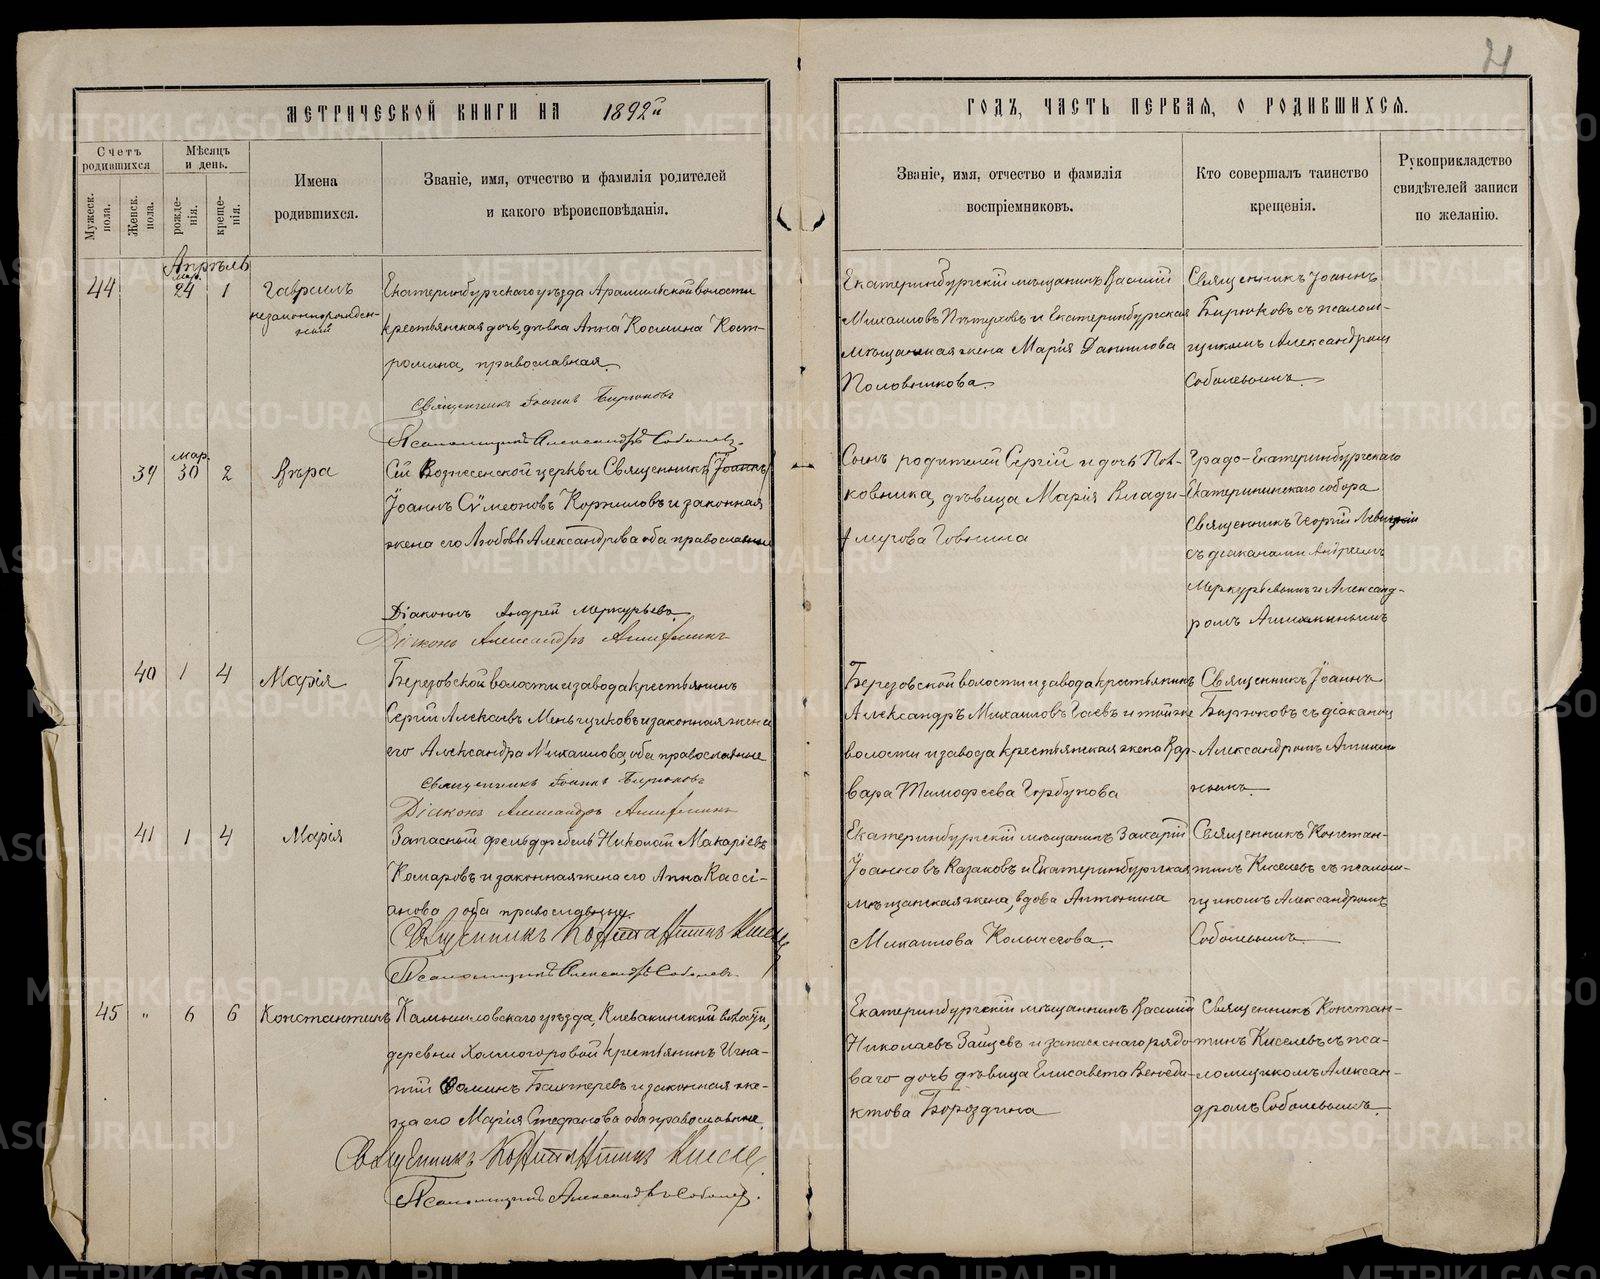 21
МЕТРИЧЕСКОЙ КНИГИ НА 1892й
ГОДЪ, ЧАСТЬ ПЕРВАЯ, О РОДИВШИХСЯ.
Счетъ родившихся
Мужеск. пола.
Женск. пола.
Мѣсяцъ и день.
рожде-
нія.
креще-
нія.
Имена
родившихся.
Званіе, имя, отчество и фамилія родителей
и какого вѣроисповѣданія.
Званіе, имя, отчество и фамилія
воспріемниковъ.
Кто совершалъ таинство
крещенія.
Рукоприкладство
свидѣтелей записи
по желанію.
Апрѣль
44
мар.
24
1
Гавриилъ
незаконнорожден-
ный
Екатеринбургскаго уѣзда Арамильской волости
крестьянская дочь, дѣвка Анна Космина Кост-
ромина, православная.
Священникъ Іоаннъ Бирюковъ
Псаломщикъ Александръ Соболевъ.
Екатеринбургскій мѣщанинъ Василій
Михаиловъ Пѣтуховъ и Екатеринбургская
мѣщанская жена Марія Данилова
Половникова.
Священникъ Іоаннъ
Бирюковъ съ псалом-
щикомъ Александромъ
Соболевымъ.
39
мар.
30
2
Вѣра
Сей Вознесенской церкви Священникъ (Іоаннъ)
Іоаннъ Сѵмеоновъ Корниловъ и законная
жена его Любовь Александрова оба православные
Діаконъ Андрей Меркурьевъ
Діаконъ Александръ
Сынъ родителей Сергій и дочь Пол-
ковника, дѣвица Марія Влади-
мірова
Градо-Екатеринбургскаго
Екатерининскаго собора
Священникъ Георгій Левицкій
съ діаконами Андреемъ
Меркурьевымъ и Александ-
ромъ
40
1
4
Марія
Березовской волости и завода крестьянинъ
Сергій Алексѣевъ Меньщиковъ и законная жена
его Александра Михаилова, оба православные
Священникъ Іоаннъ Бирюковъ
Діаконъ Александръ
Березовской волости и завода крестьянинъ
Александръ Михаиловъ Гаевъ и той же
волости и завода крестьянская жена Вар-
вара Тимофеева Горбунова
Священникъ Іоаннъ
Бирюковъ съ діакономъ
Александромъ
41
1
4
Марія
Запасный фельдфебель Николай Макаріевъ
Комаровъ и законная жена его Анна Кассі-
анова оба православные.
Священникъ Константинъ Киселевъ
Псаломщикъ Александръ Соболевъ.
Екатеринбургскій мѣщанинъ Захарій
Іоанновъ Казаковъ и Екатеринбургская
мѣщанская жена, вдова Антонина
Михаилова Колычева.
Священникъ Констан-
тинъ Киселевъ съ псалом-
щикомъ Александромъ
Соболевымъ.
45
"
6
6
Константинъ
Камышловскаго уѣзда, Клевакинской волости,
деревни Холмогоровой крестьянинъ Игна-
тій Фоминъ Бахтеревъ и законная же-
на его Марія Стефанова оба православные.
Священникъ Константинъ Киселевъ
Псаломщикъ Александръ Соболевъ.
Екатеринбургскій мѣщанинъ Василій
Николаевъ Зайцевъ и запаснаго рядо-
ваго дочь дѣвица Елисавета Венеди-
ктова Бороздина
Священникъ Констан-
тинъ Киселевъ съ пса-
ломщикомъ Алексан-
дромъ Соболевымъ.
METRIKI.GASO-URAL.RU